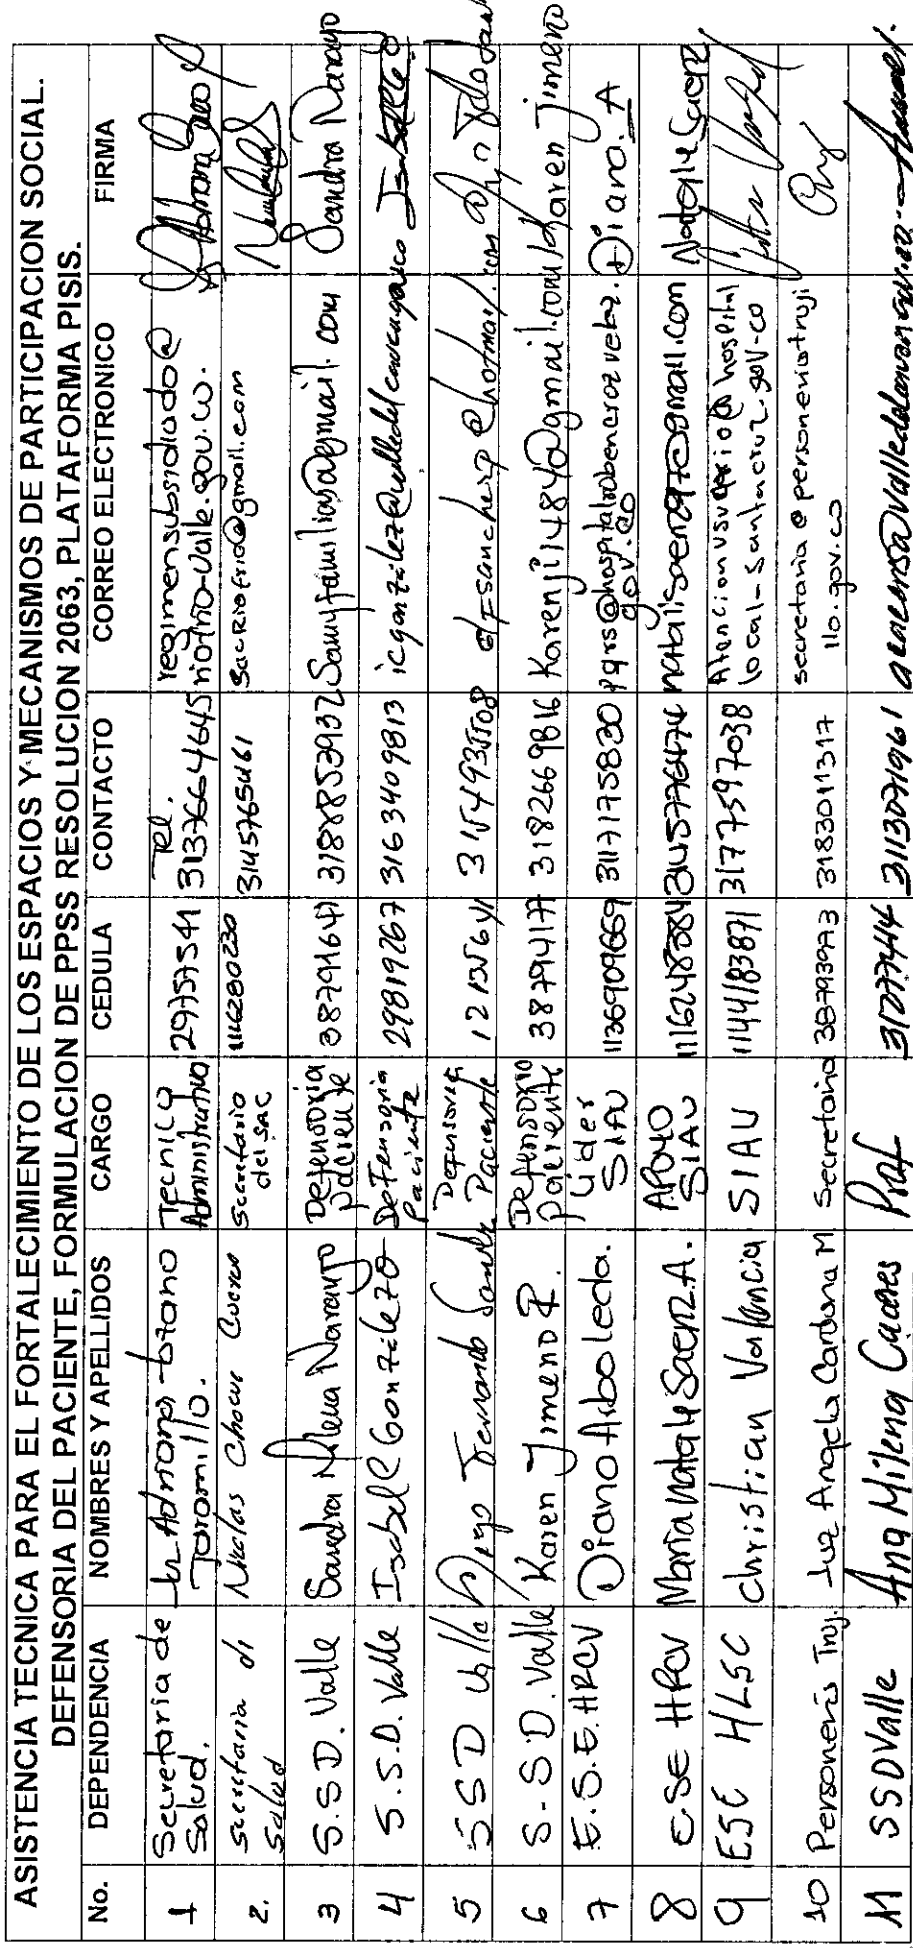 ASISTENCIA TECNICA PARA EL FORTALECIMIENTO DE LOS ESPACIOS Y MECANISMOS DE PARTICIPACION SOCIAL.
DEFENSORIA DEL PACIENTE, FORMULACION DE PPSS RESOLUCION 2063, PLATAFORMA PISIS.
No. DEPENDENCIA NOMBRES Y APELLIDOS CARGO CEDULA CONTACTO CORREO ELECTRONICO FIRMA
1 Secretaria de Salud. Luz Adriana Lozano Jaramillo. Tecnico Administrativo 29757541 Tel. 3137664645 regimensubsidiado@riofrio-valle.gov.co.
2. Secretaria de Salud Nikolas Chocue Cuervo Secretario del sac 1116280230 3145765461 SacRiofrio@gmail.com
3 S.S.D. Valle Sandra Milena Naranjo Defensoria paciente 38791641 3188853937 Samyfamilias@gmail.com Sandra Naranjo
4 S.S.D. Valle Isabel C Gonzalez O Defensoria Paciente 29819267 3163409813
5 SSD Valle Diego Fernando Defensoria Paciente 3154935508
6 S.SD. Valle Karen Jimeno R. Defensoria paciente 38794177 3182669816 Karenji1484@gmail.com Karen Jimeno
7 E.S.E. HRCV Diana Arboleda. Lider SIAU 1136909669 3117175830 pqrs@hospitalrubencruzvelez.gov.co Diana. A
8 ESE HRCV Maria Nataly Saenz A. Apoyo SIAU natalisaenz97@gmail.com
9 ESE HLSC Christian Valencia SIAU 1144183871 3177597038 Atencionusuario@hospitallocal-santacruz.gov.co
10 Personeria Truj. Luz Angela Cardona M Secretaria 38793973 3183011317 secretaria@personeriatrujillo.gov.co
11 SSDValle Ana Milena Prof 3113071961